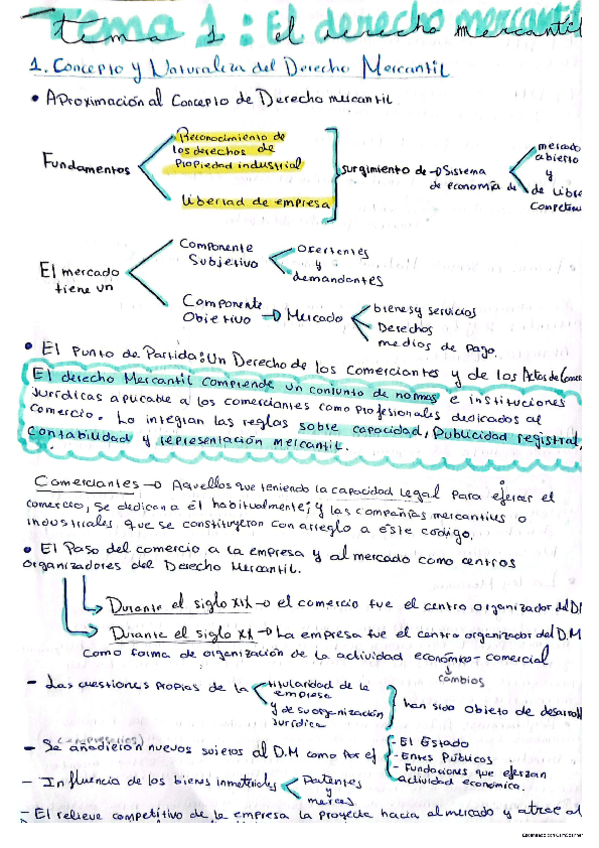 Tema 1: El derecho mercantil
1. Concepto y Naturaleza del Derecho Mercantil
• Aproximación al Concepto de Derecho mercantil
Fundamentos
Reconocimiento de
los derechos de
Propiedad industrial
libertad de empresa
surgimiento de → Sistema
de economía de
mercado
abierto
y
de libre
Competen
El mercado
tiene un
Componente
Subjetivo
Ofertentes
y
demandantes
Componente
Objetivo → Mercado
bienes y servicios
Derechos
medios de pago
• El Punto de Partida: Un Derecho de los Comerciantes y de los Actos de Comerc
El derecho Mercantil comprende un conjunto de normas e instituciones
Jurídicas aplicable a los comerciantes como profesionales dedicados al
comercio. Lo integran las reglas sobre capacidad, Publicidad registral,
contabilidad y representación mercantil.
Comerciantes → Aquellos que teniendo la capacidad legal para ejercer el
comercio, se dedican a él habitualmente; y las compañías mercantiles o
industriales que se constituyeron con arreglo a este codigo.
• El Paso del comercio a la empresa y al mercado como centros
organizadores del Derecho Mercantil.
Durante el siglo XIX → el comercio fue el centro organizador del D
Durante el siglo XX → La empresa fue el centro organizador del D.M
como forma de organización de la actividad económico-comercial
cambios
- Las cuestiones propias de la
titularidad de la
empresa
y de su organización
Jurídica
han sido objeto de desarroll
- Se añadieron nuevos sujetos al D.M como por ej
- El Estado
- Entes Públicos
- Fundaciones que ejerzan
actividad económica.
- Influencia de los bienes inmateriales
Patentes
y
marcas
- El relieve competitivo de la empresa la proyecta hacia el mercado y atrae al